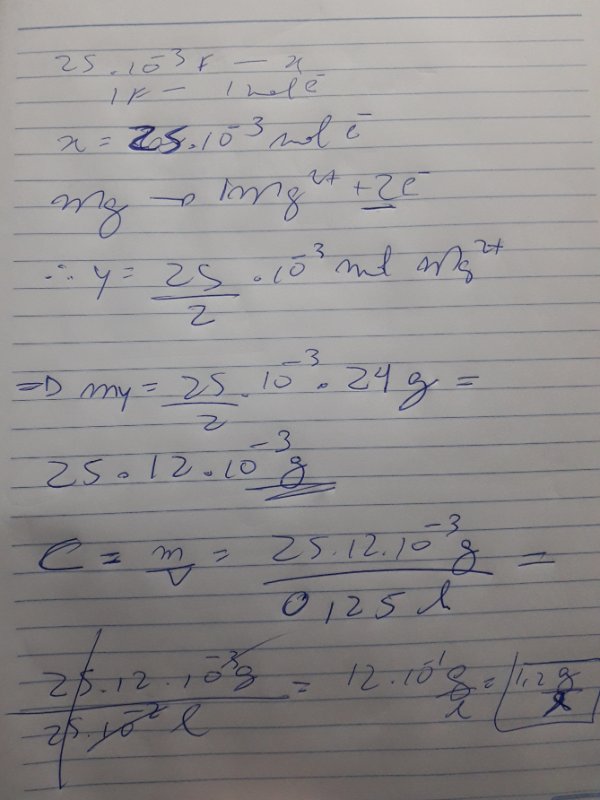 25.10⁻³F — x
1F — 1 mol e⁻
x = 25.10⁻³ mol e⁻
Mg → 1Mg²⁺ + 2e⁻
∴ y = 25/2 .10⁻³ mol Mg²⁺
=> my = 25/2 .10⁻³ . 24 g =
25 . 12 . 10⁻³ g
C = m/V = 25.12.10⁻³ g / 0,25 l =
25.12.10⁻³ g / 25.10⁻² l = 12.10⁻¹ g/l = 1,2 g/l